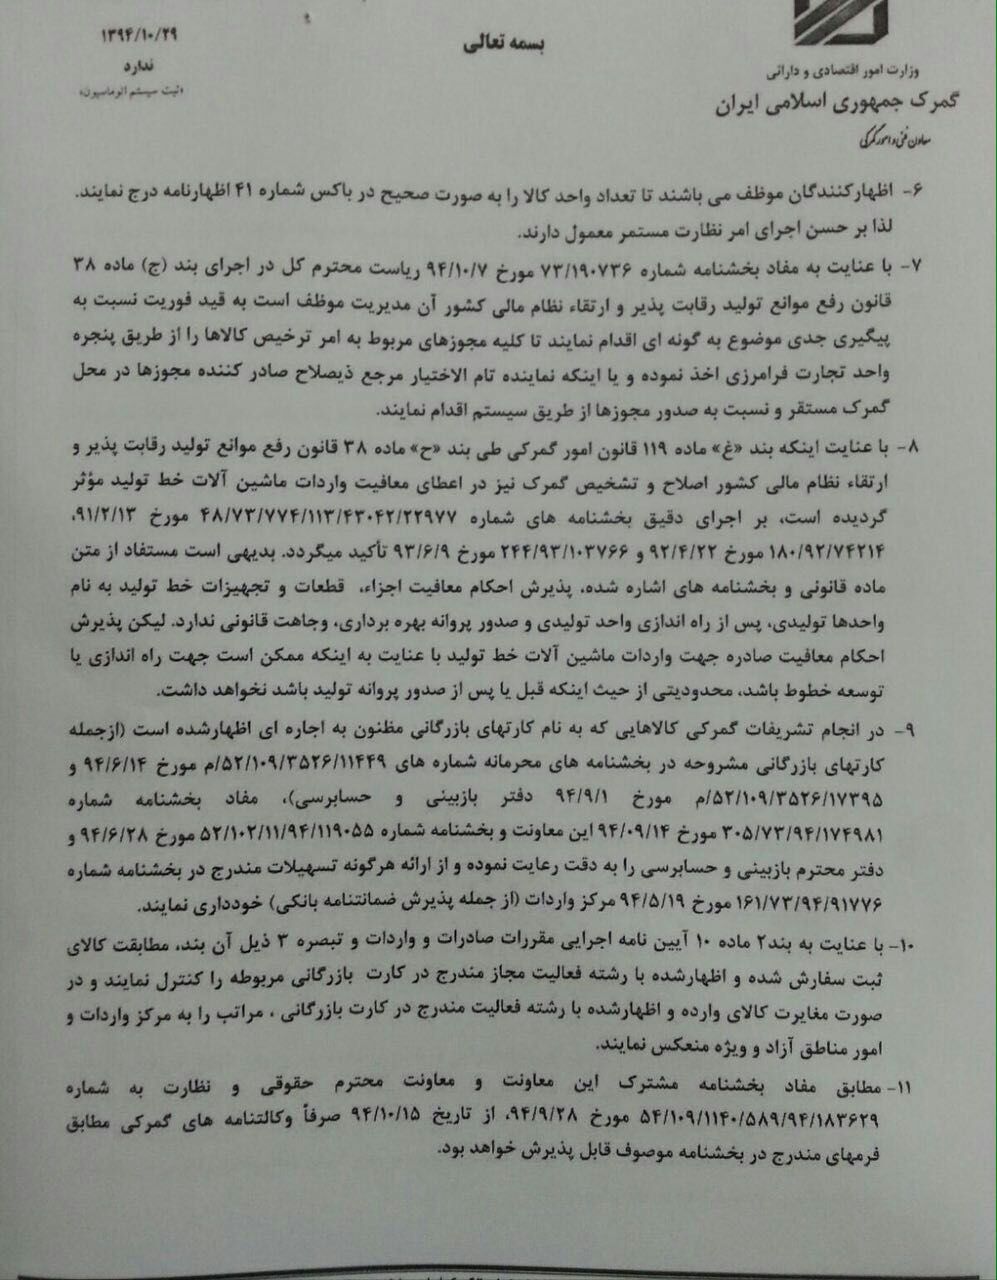 ۱۳۹۴/۱۰/۲۹
ندارد
«ثبت سیستم اتوماسیون»
بسمه تعالی
وزارت امور اقتصادی و دارائی
گمرک جمهوری اسلامی ایران
معاون فنی و امور گمرکی
۶- اظهارکنندگان موظف می باشند تا تعداد واحد کالا را به صورت صحیح در باکس شماره ۴۱ اظهارنامه درج نمایند.
لذا بر حسن اجرای امر نظارت مستمر معمول دارند.
۷- با عنایت به مفاد بخشنامه شماره ۷۳/۱۹۰۷۳۶ مورخ ۹۴/۱۰/۷ ریاست محترم کل در اجرای بند (ج) ماده ۳۸
قانون رفع موانع تولید رقابت پذیر و ارتقاء نظام مالی کشور آن مدیریت موظف است به قید فوریت نسبت به
پیگیری جدی موضوع به گونه ای اقدام نمایند تا کلیه مجوزهای مربوط به امر ترخیص کالاها را از طریق پنجره
واحد تجارت فرامرزی اخذ نموده و یا اینکه نماینده تام الاختیار مرجع ذیصلاح صادر کننده مجوزها در محل
گمرک مستقر و نسبت به صدور مجوزها از طریق سیستم اقدام نمایند.
۸- با عنایت اینکه بند «غ» ماده ۱۱۹ قانون امور گمرکی طی بند «ح» ماده ۳۸ قانون رفع موانع تولید رقابت پذیر و
ارتقاء نظام مالی کشور اصلاح و تشخیص گمرک نیز در اعطای معافیت واردات ماشین آلات خط تولید مؤثر
گردیده است، بر اجرای دقیق بخشنامه های شماره ۴۸/۷۳/۷۷۴/۱۱۳/۴۳۰۴۲/۲۲۹۷۷ مورخ ۹۱/۲/۱۳،
۱۸۰/۹۲/۷۴۲۱۴ مورخ ۹۲/۴/۲۲ و ۲۴۴/۹۳/۱۰۳۷۶۶ مورخ ۹۳/۶/۹ تأکید میگردد. بدیهی است مستفاد از متن
ماده قانونی و بخشنامه های اشاره شده، پذیرش احکام معافیت اجزاء، قطعات و تجهیزات خط تولید به نام
واحدها تولیدی، پس از راه اندازی واحد تولیدی و صدور پروانه بهره برداری، وجاهت قانونی ندارد. لیکن پذیرش
احکام معافیت صادره جهت واردات ماشین آلات خط تولید با عنایت به اینکه ممکن است جهت راه اندازی یا
توسعه خطوط باشد، محدودیتی از حیث اینکه قبل یا پس از صدور پروانه تولید باشد نخواهد داشت.
۹- در انجام تشریفات گمرکی کالاهایی که به نام کارتهای بازرگانی مظنون به اجاره ای اظهارشده است (ازجمله
کارتهای بازرگانی مشروحه در بخشنامه های محرمانه شماره های ۵۲/۱۰۹/۳۵۲۶/۱۱۴۴۹/م مورخ ۹۴/۶/۱۴ و
۵۲/۱۰۹/۳۵۲۶/۱۷۳۹۵/م مورخ ۹۴/۹/۱ دفتر بازبینی و حسابرسی)، مفاد بخشنامه شماره
۳۰۵/۷۳/۹۴/۱۷۴۹۸۱ مورخ ۹۴/۰۹/۱۴ این معاونت و بخشنامه شماره ۵۲/۱۰۲/۱۱/۹۴/۱۱۹۰۵۵ مورخ ۹۴/۶/۲۸ و
دفتر محترم بازبینی و حسابرسی را به دقت رعایت نموده و از ارائه هرگونه تسهیلات مندرج در بخشنامه شماره
۱۶۱/۷۳/۹۴/۹۱۷۷۶ مورخ ۹۴/۵/۱۹ مرکز واردات (از جمله پذیرش ضمانتنامه بانکی) خودداری نمایند.
۱۰- با عنایت به بند۲ ماده ۱۰ آیین نامه اجرایی مقررات صادرات و واردات و تبصره ۳ ذیل آن بند، مطابقت کالای
ثبت سفارش شده و اظهارشده با رشته فعالیت مجاز مندرج در کارت بازرگانی مربوطه را کنترل نمایند و در
صورت مغایرت کالای وارده و اظهارشده با رشته فعالیت مندرج در کارت بازرگانی ، مراتب را به مرکز واردات و
امور مناطق آزاد و ویژه منعکس نمایند.
۱۱- مطابق مفاد بخشنامه مشترک این معاونت و معاونت محترم حقوقی و نظارت به شماره
۵۴/۱۰۹/۱۱۴۰/۵۸۹/۹۴/۱۸۳۶۲۹ مورخ ۹۴/۹/۲۸، از تاریخ ۹۴/۱۰/۱۵ صرفاً وکالتنامه های گمرکی مطابق
فرمهای مندرج در بخشنامه موصوف قابل پذیرش خواهد بود.